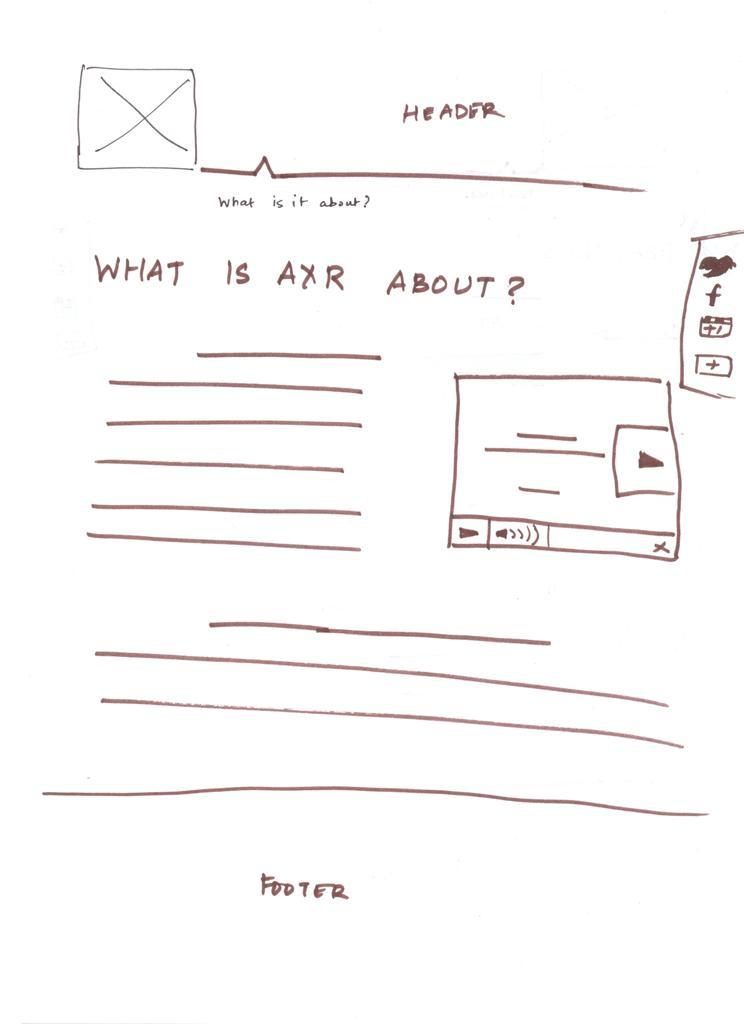 HEADER
What is it about?
WHAT IS AXR ABOUT?
f
FOOTER